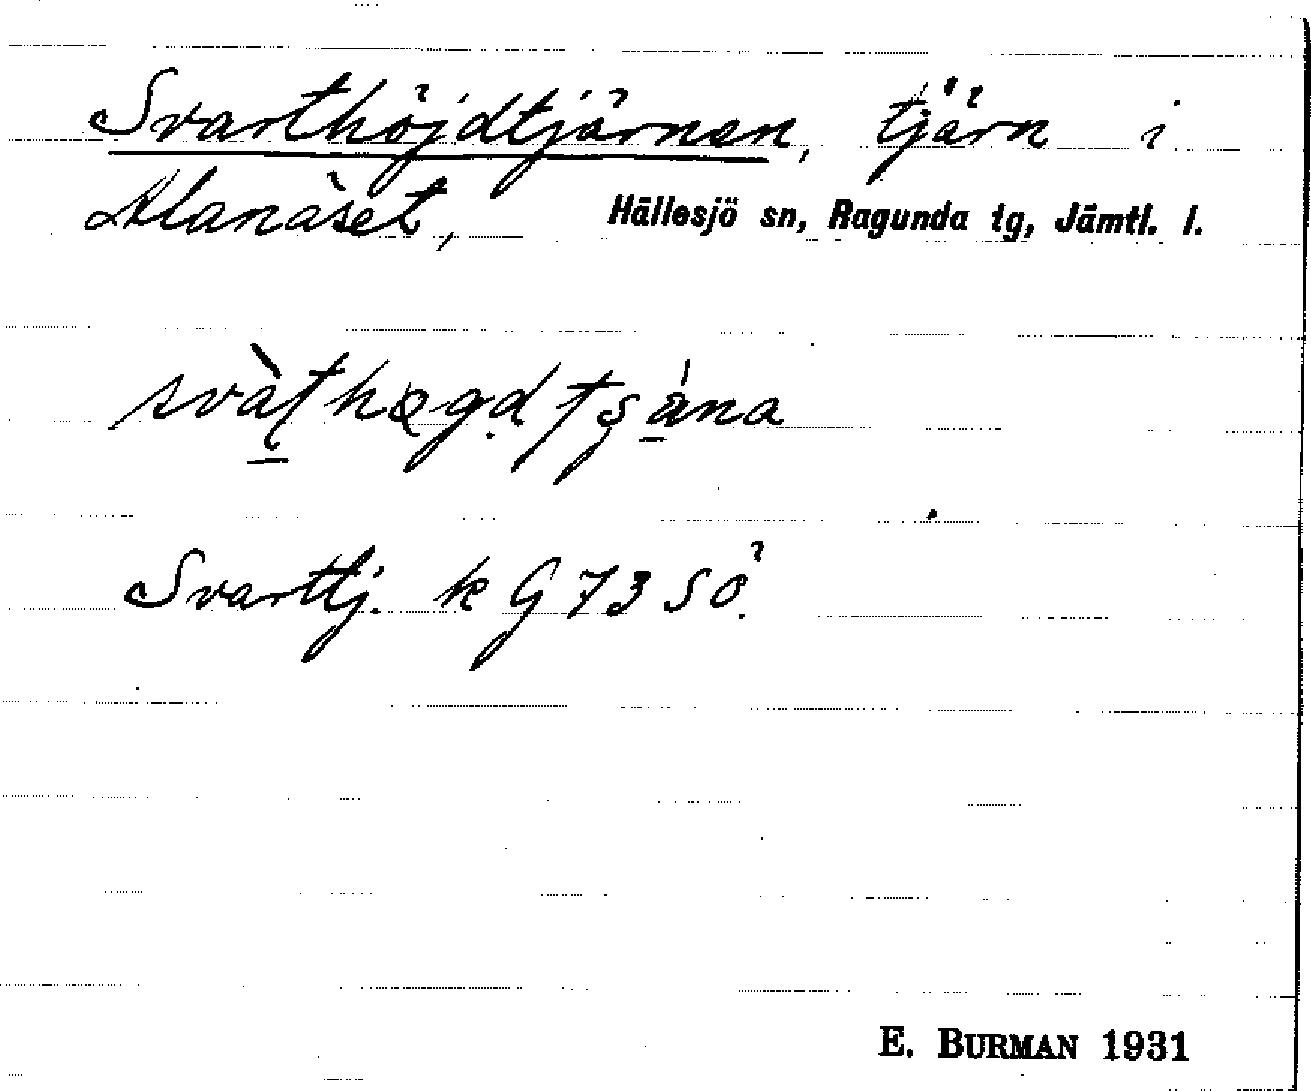 Svarthöjdtjärnen, tjärn i
Alanäset, Hällesjö sn, Ragunda tg, Jämtl. l.
svàt høgd tşána
Svarttj. k G 73 SÖ.
E. BURMAN 1931